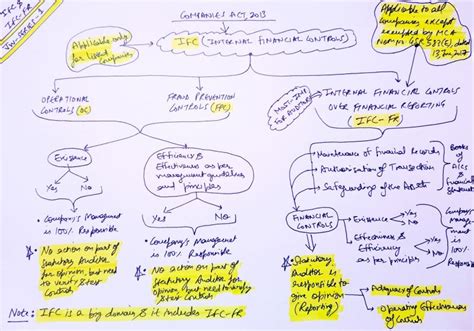 IFC &
IFC-FR
COMPANIES ACT, 2013
Applicable only
for listed
Companies
IFC (INTERNAL FINANCIAL CONTROLS)
Applicable to all
Companies except
exempted by MCA
13 June, 2017
OPERATIONAL
CONTROLS (OC)
FRAUD PREVENTION
CONTROLS (FPC)
MOST-IMP
FOR AUDITORS
INTERNAL FINANCIAL CONTROLS
OVER FINANCIAL REPORTING
(IFC-FR)
Existence
Yes
No
Efficiency &
Effectiveness as per
management guidelines
and principles
Yes
No
Maintenance of Financial Records
Authorisation of Transaction
Safeguarding of the Assets
Books
of
A/cs
&
Financial
Statements
FINANCIAL
CONTROLS
Existence
Yes
No
Effectiveness &
Efficiency
as per principles
Yes
No
Company's
Management
is 100%
Responsible
* Company's Management
is 100% Responsible
* No action on part of
Statutory Auditor
for opinion, but need to
verify & test
Controls
* Company's Management
is 100% Responsible
* No action on part of
Statutory Auditor for
opinion, but need to verify
& test Controls
* Statutory
Auditor is
responsible to
give opinion
(Reporting)
Adequacy of Controls
Operating Effectiveness
of Controls
Note: IFC is a big domain & it includes IFC-FR